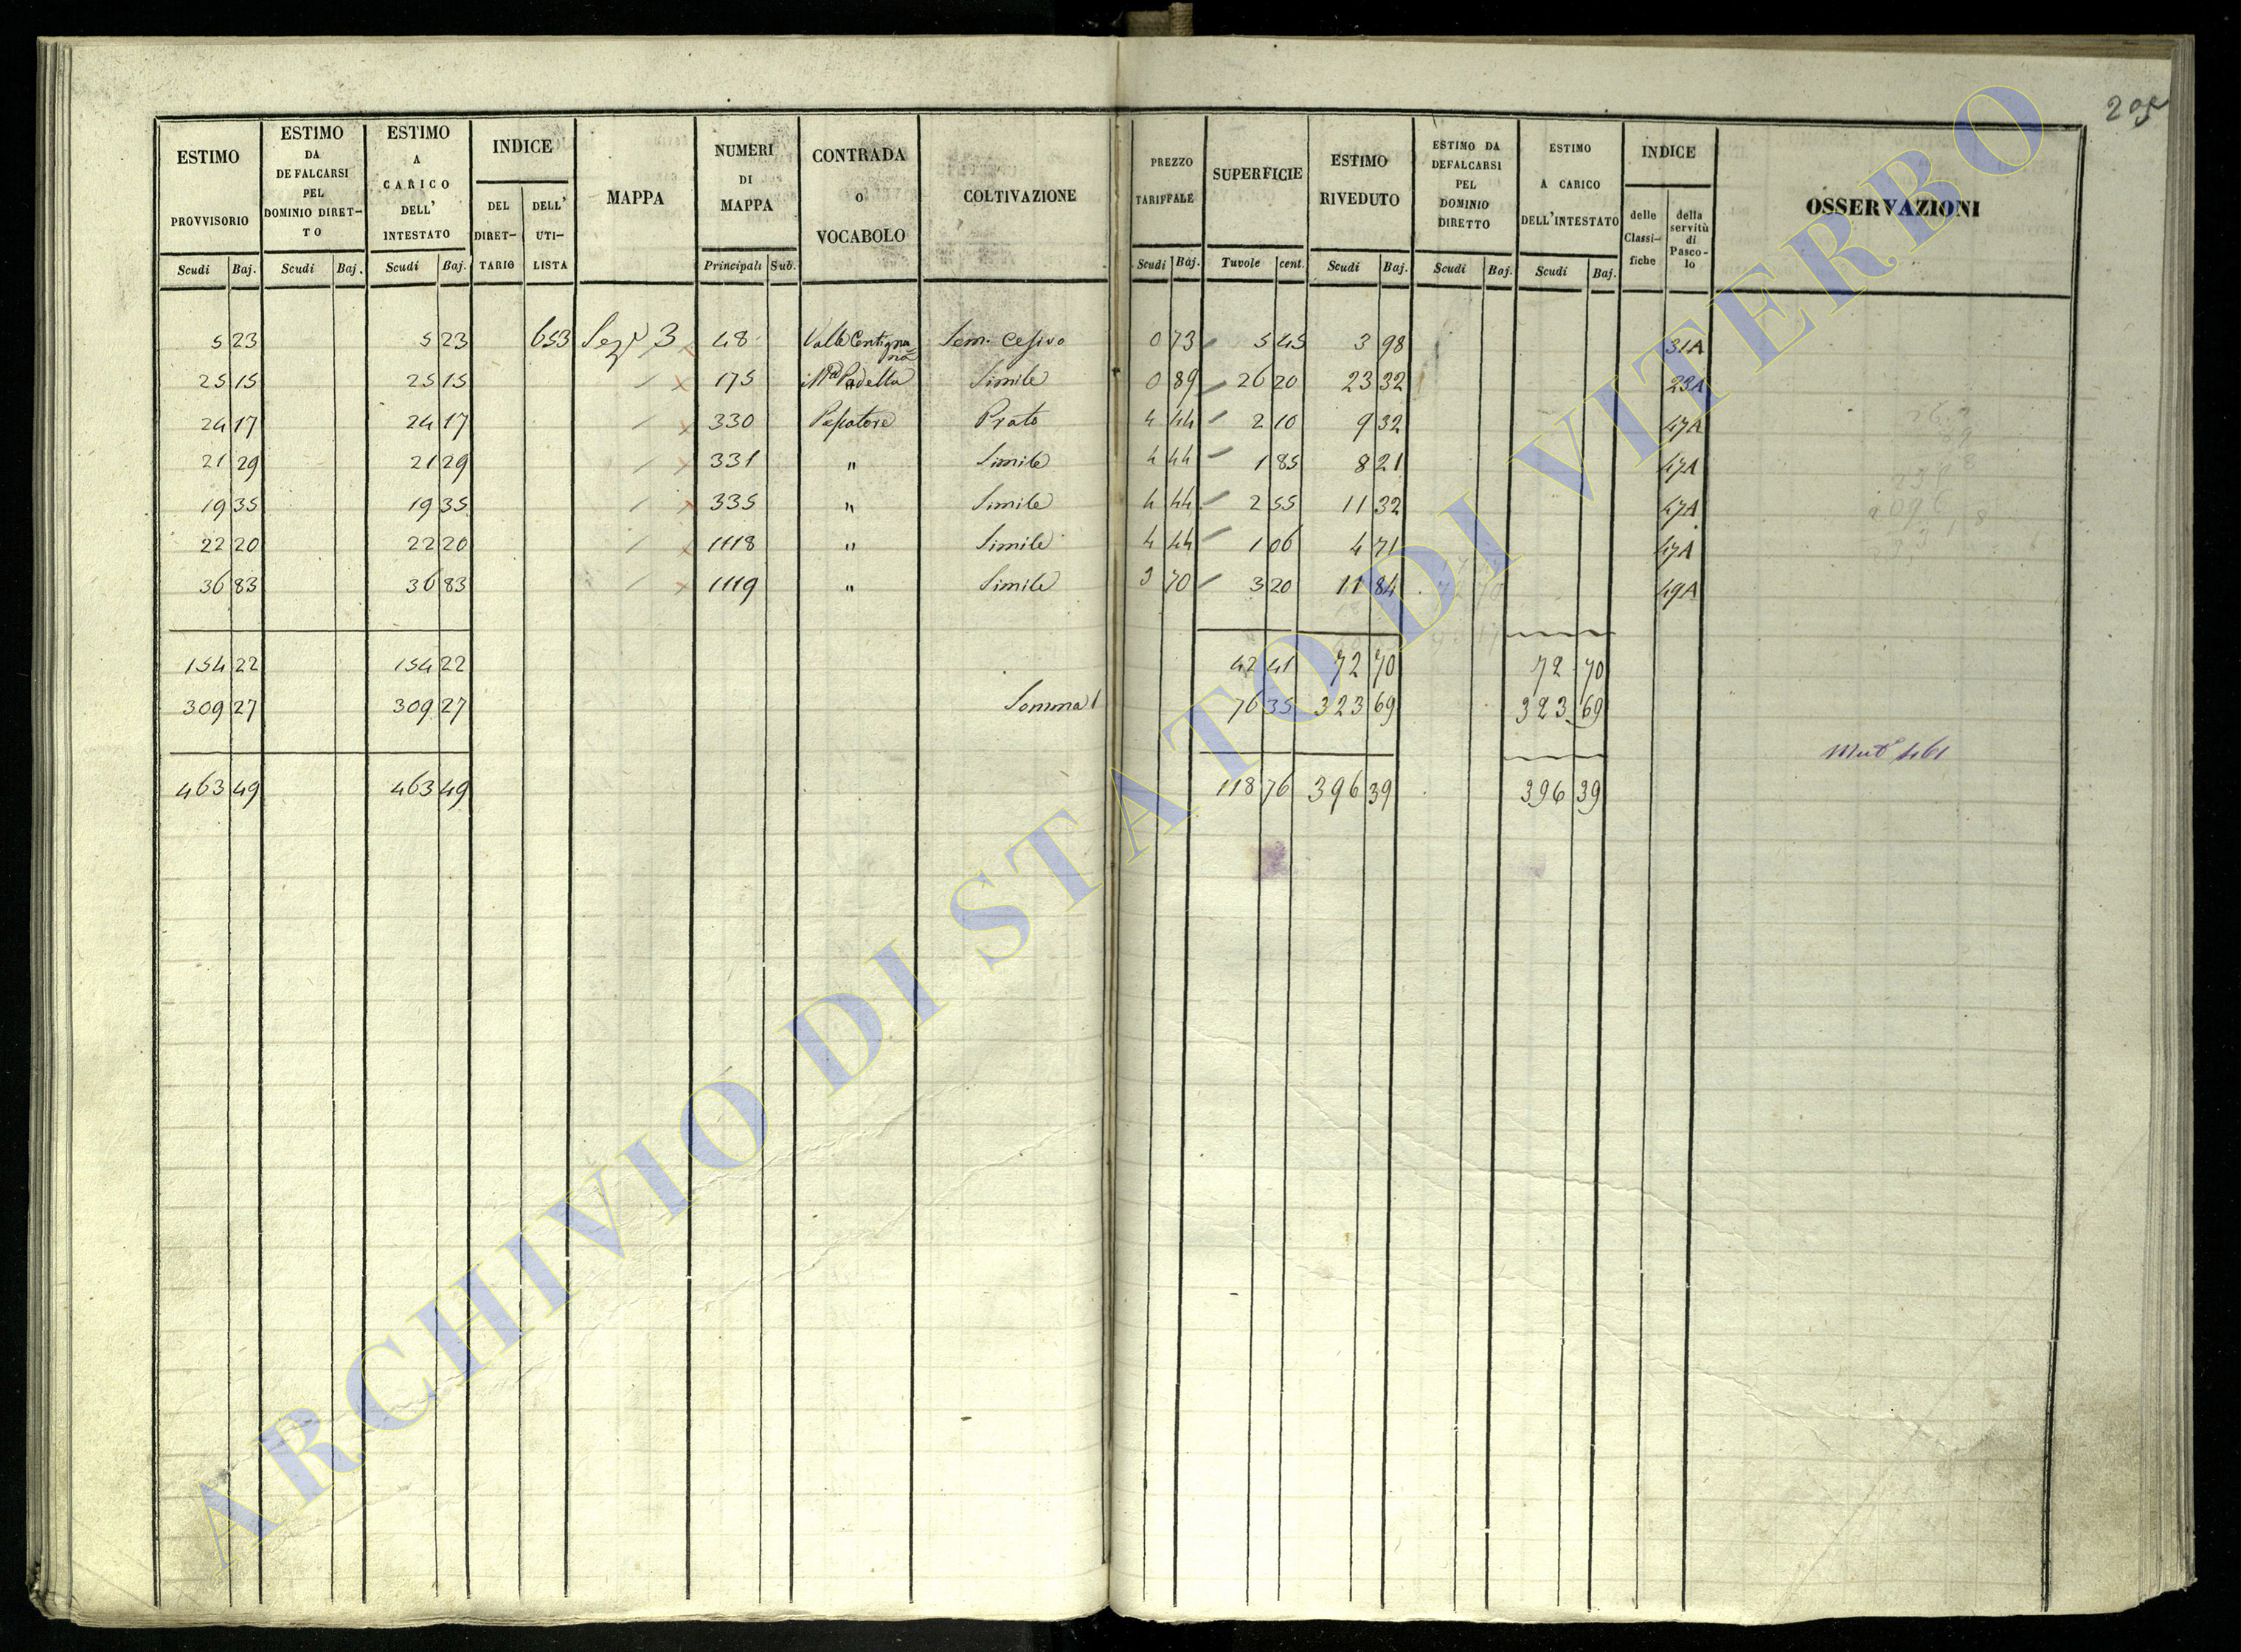 205
ESTIMO PROVVISORIO
ESTIMO DA DEFALCARSI PEL DOMINIO DIRET-TO
ESTIMO A CARICO DELL' INTESTATO
INDICE
DEL DIRET-TARIO
DELL' UTI-LISTA
MAPPA
NUMERI DI MAPPA
CONTRADA o VOCABOLO
COLTIVAZIONE
PREZZO TARIFFALE
SUPERFICIE
ESTIMO RIVEDUTO
ESTIMO DA DEFALCARSI PEL DOMINIO DIRETTO
ESTIMO A CARICO DELL'INTESTATO
INDICE
delle Classi-fiche
della servitù di Pasco-lo
OSSERVAZIONI
Scudi Baj. Scudi Baj. Scudi Baj. Principali Sub. Scudi Baj. Tavole cent. Scudi Baj. Scudi Baj. Scudi Baj.
5 23 5 23 653 Sez.e 3 48 Valle Sem. Cesivo 0 73 5 45 3 98 31A
25 15 25 15 / x 175 Padella Simile 0 89 26 20 23 32 23A
24 17 24 17 / x 330 Prato 4 44 2 10 9 32 47A
21 29 21 29 / x 331 " Simile 4 44 1 85 8 21 47A
19 35 19 35 / x 335 " Simile 4 44 2 55 11 32 47A
22 20 22 20 / x 1118 " Simile 4 44 1 06 4 71 47A
36 83 36 83 / x 1119 " Simile 3 70 3 20 11 84 49A
154 22 154 22 42 41 72 70 72 70
309 27 309 27 Somma 76 35 323 69 323 69
Mut 461
463 49 463 49 118 76 396 39 396 39
ARCHIVIO DI STATO DI VITERBO